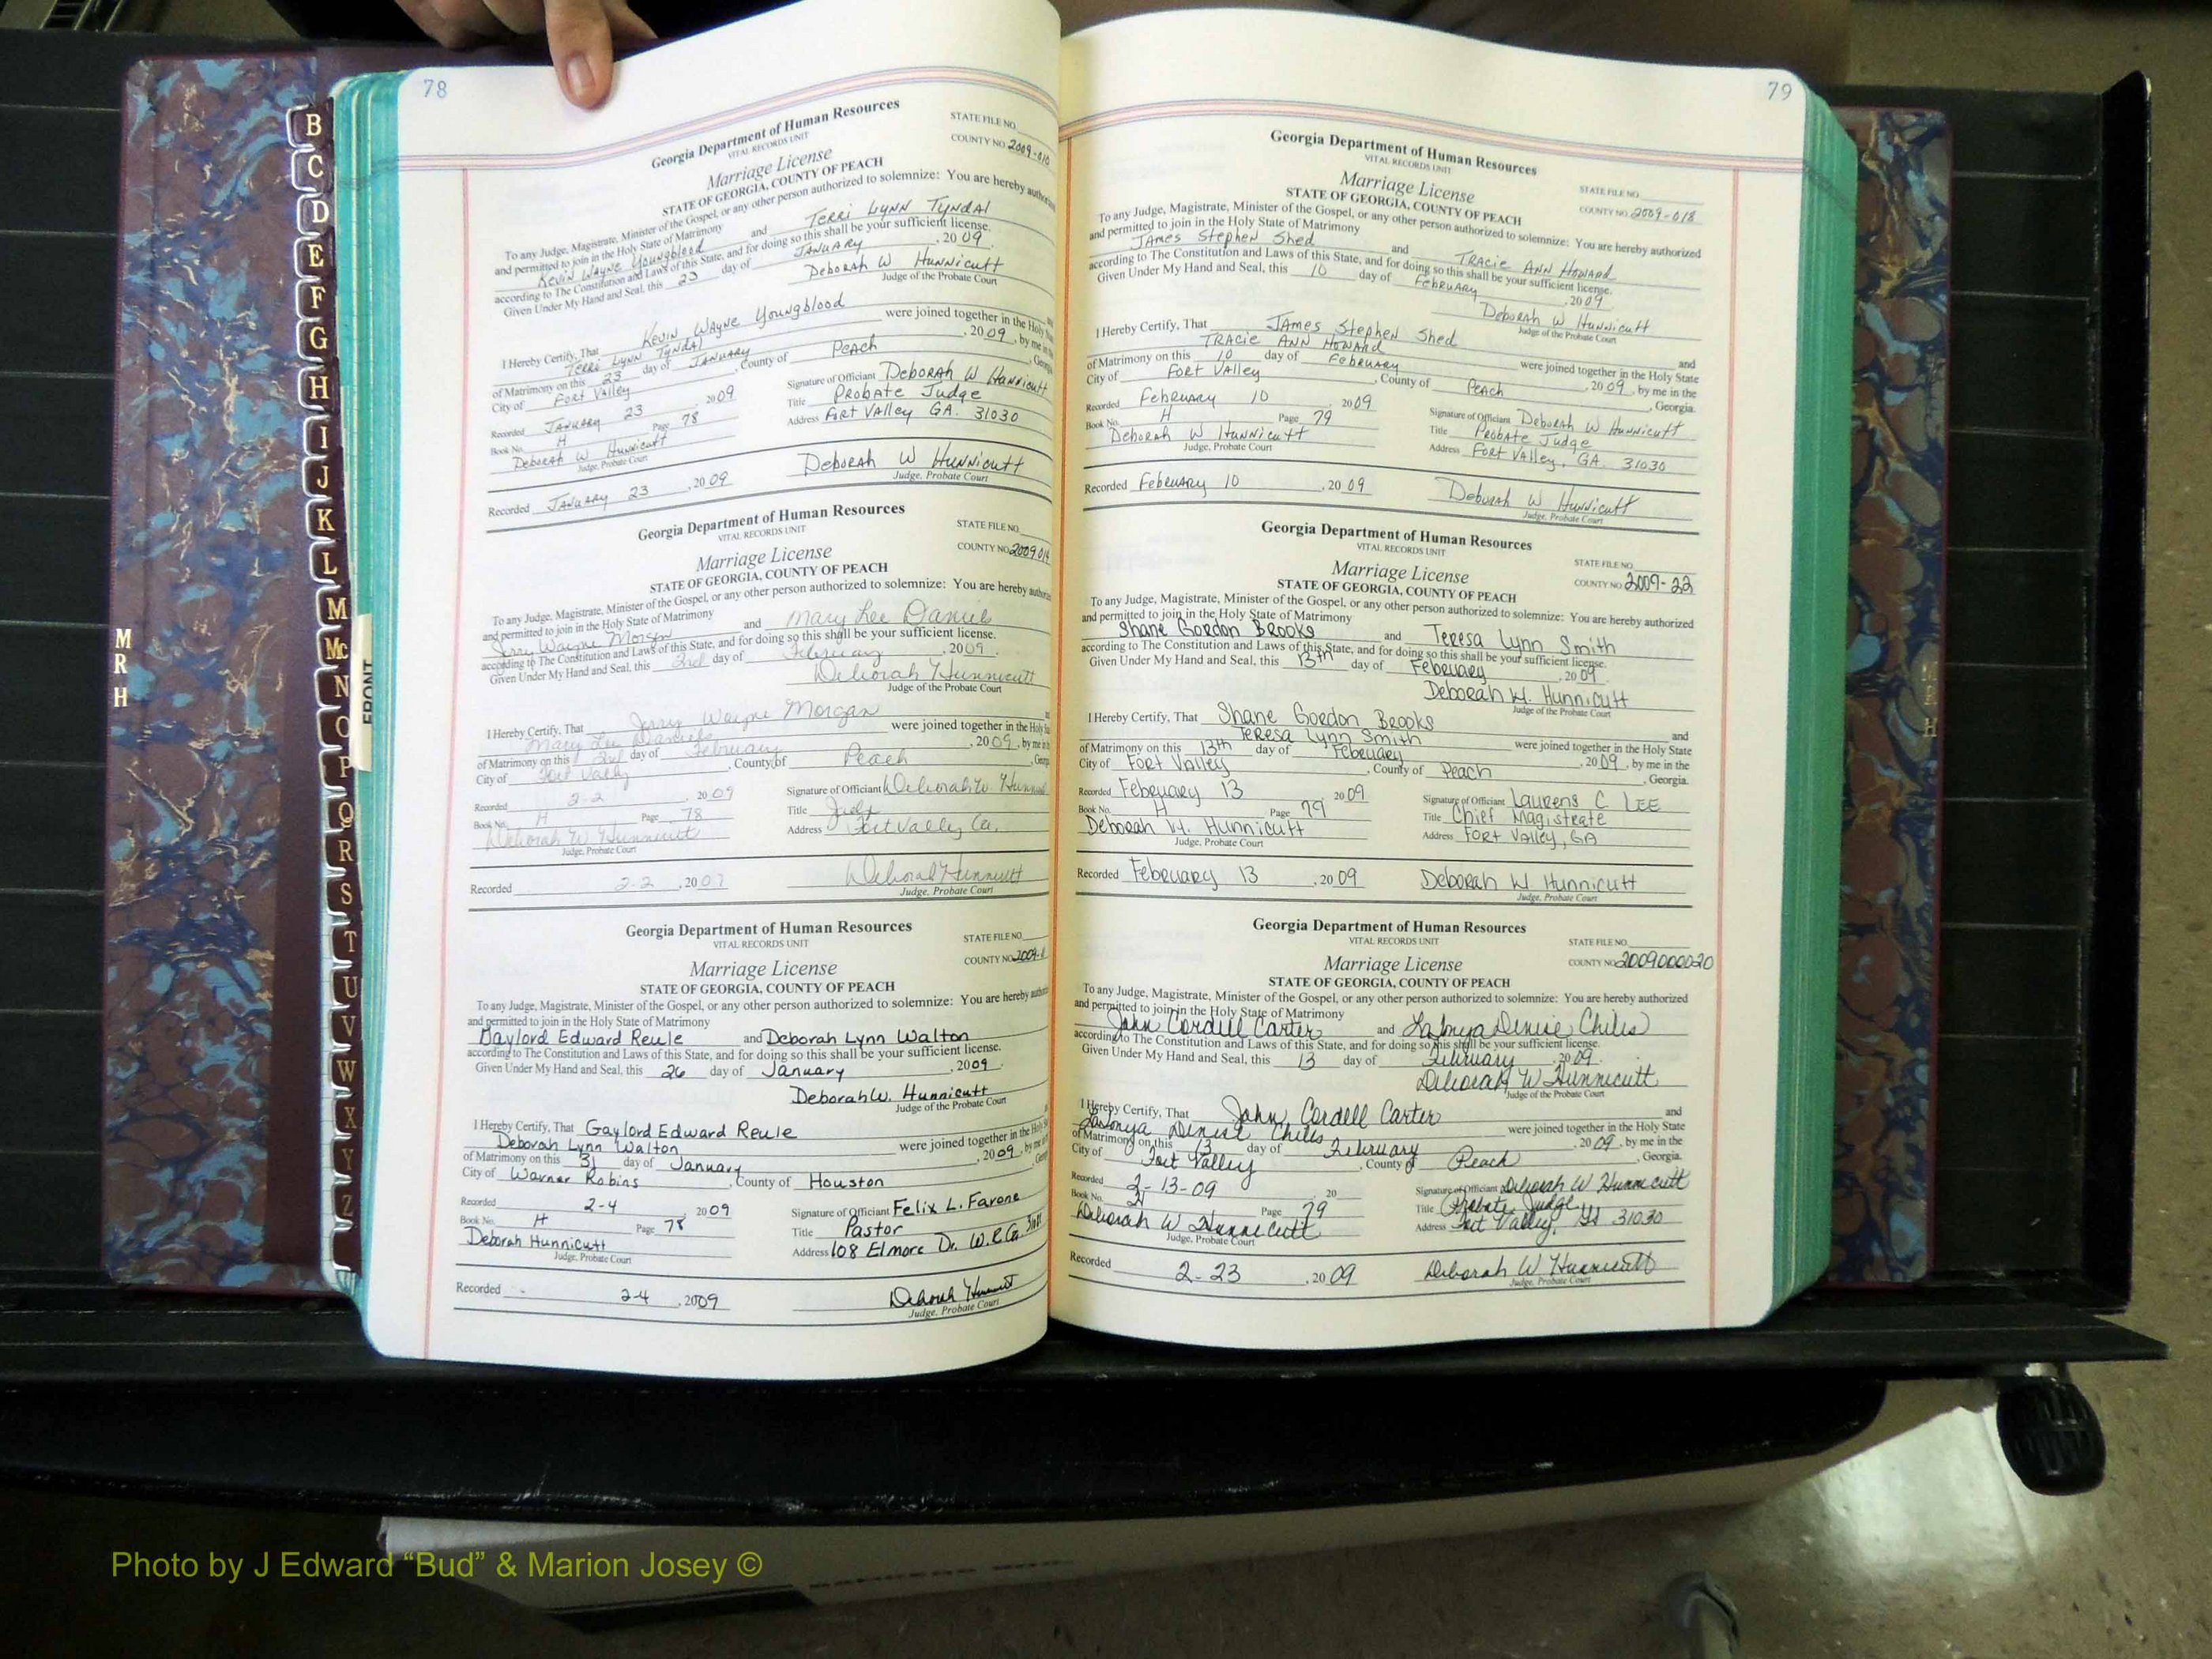 78
Georgia Department of Human Resources
VITAL RECORDS UNIT
STATE FILE NO.
COUNTY NO. 2009-010
Marriage License
STATE OF GEORGIA, COUNTY OF PEACH
To any Judge, Magistrate, Minister of the Gospel, or any other person authorized to solemnize: You are hereby
and permitted to join in the Holy State of Matrimony
Kevin Wayne Youngblood and Terri Lynn Tyndal
according to The Constitution and Laws of this State, and for doing so this shall be your sufficient license.
Given Under My Hand and Seal, this 23 day of January, 2009.
Deborah W Hunnicutt
Judge of the Probate Court
I Hereby Certify, That Kevin Wayne Youngblood
Terri Lynn Tyndal were joined together in the Holy
of Matrimony on this 23 day of January, 2009, by me in
City of Fort Valley, County of Peach
Recorded January 23 2009
Signature of Officiant Deborah W Hunnicutt
Book No. H Page 78
Title Probate Judge
Deborah W Hunnicutt
Address Fort Valley GA. 31030
Judge, Probate Court
Recorded January 23, 2009
Deborah W Hunnicutt
Judge, Probate Court
Georgia Department of Human Resources
VITAL RECORDS UNIT
STATE FILE NO.
COUNTY NO.
Marriage License
STATE OF GEORGIA, COUNTY OF PEACH
To any Judge, Magistrate, Minister of the Gospel, or any other person authorized to solemnize: You are hereby
and permitted to join in the Holy State of Matrimony
Jerry Wayne Morgan and Mary Lee Daniels
according to The Constitution and Laws of this State, and for doing so this shall be your sufficient license.
Given Under My Hand and Seal, this 2nd day of February, 2009.
Deborah Hunnicutt
Judge of the Probate Court
I Hereby Certify, That Jerry Wayne Morgan
Mary Lee Daniels were joined together in the Holy
of Matrimony on this 2nd day of February, 2009, by me in
City of Fort Valley, County of Peach
Recorded 2-2, 2009
Signature of Officiant Deborah W.
Book No. H Page 78
Title Judge
Deborah W Hunnicutt
Address Fort Valley Ga.
Judge, Probate Court
Recorded 2-2, 20
Deborah Hunnicutt
Judge, Probate Court
Georgia Department of Human Resources
VITAL RECORDS UNIT
STATE FILE NO.
COUNTY NO.
Marriage License
STATE OF GEORGIA, COUNTY OF PEACH
To any Judge, Magistrate, Minister of the Gospel, or any other person authorized to solemnize: You are hereby
and permitted to join in the Holy State of Matrimony
Gaylord Edward Reule and Deborah Lynn Walton
according to The Constitution and Laws of this State, and for doing so this shall be your sufficient license.
Given Under My Hand and Seal, this 26 day of January, 2009.
Deborah W. Hunnicutt
Judge of the Probate Court
I Hereby Certify, That Gaylord Edward Reule
Deborah Lynn Walton were joined together in the Holy
of Matrimony on this 31 day of January, 2009, by me
City of Warner Robins, County of Houston
Recorded 2-4 2009
Signature of Officiant Felix L. Farone
Book No. H Page 78
Title Pastor
Deborah Hunnicutt
Address 108 Elmore Dr. W.R. Ga.
Judge, Probate Court
Recorded 2-4, 2009
Deborah Hunnicutt
Judge, Probate Court
79
Georgia Department of Human Resources
VITAL RECORDS UNIT
STATE FILE NO.
COUNTY NO. 2009-018
Marriage License
STATE OF GEORGIA, COUNTY OF PEACH
To any Judge, Magistrate, Minister of the Gospel, or any other person authorized to solemnize: You are hereby authorized
and permitted to join in the Holy State of Matrimony
James Stephen Shed and Tracie Ann Howard
according to The Constitution and Laws of this State, and for doing so this shall be your sufficient license.
Given Under My Hand and Seal, this 10 day of February, 2009.
Deborah W Hunnicutt
Judge of the Probate Court
I Hereby Certify, That James Stephen Shed and
Tracie Ann Howard were joined together in the Holy State
of Matrimony on this 10 day of February, 2009, by me in the
City of Fort Valley, County of Peach, Georgia.
Recorded February 10 2009
Signature of Officiant Deborah W Hunnicutt
Book No. H Page 79
Title Probate Judge
Deborah W Hunnicutt
Address Fort Valley, GA 31030
Judge, Probate Court
Recorded February 10, 2009
Deborah W Hunnicutt
Judge, Probate Court
Georgia Department of Human Resources
VITAL RECORDS UNIT
STATE FILE NO.
COUNTY NO. 2009-22
Marriage License
STATE OF GEORGIA, COUNTY OF PEACH
To any Judge, Magistrate, Minister of the Gospel, or any other person authorized to solemnize: You are hereby authorized
and permitted to join in the Holy State of Matrimony
Shane Gordon Brooks and Teresa Lynn Smith
according to The Constitution and Laws of this State, and for doing so this shall be your sufficient license.
Given Under My Hand and Seal, this 13th day of February, 2009.
Deborah W. Hunnicutt
Judge of the Probate Court
I Hereby Certify, That Shane Gordon Brooks and
Teresa Lynn Smith were joined together in the Holy State
of Matrimony on this 13th day of February, 2009, by me in the
City of Fort Valley, County of Peach, Georgia.
Recorded February 13 2009
Signature of Officiant Laurens C Lee
Book No. H Page 79
Title Chief Magistrate
Deborah W. Hunnicutt
Address Fort Valley, GA
Judge, Probate Court
Recorded February 13, 2009
Deborah W. Hunnicutt
Judge, Probate Court
Georgia Department of Human Resources
VITAL RECORDS UNIT
STATE FILE NO.
COUNTY NO. 2009000020
Marriage License
STATE OF GEORGIA, COUNTY OF PEACH
To any Judge, Magistrate, Minister of the Gospel, or any other person authorized to solemnize: You are hereby authorized
and permitted to join in the Holy State of Matrimony
John Cordell Carter and LaTonya Denise Chiles
according to The Constitution and Laws of this State, and for doing so this shall be your sufficient license.
Given Under My Hand and Seal, this 13 day of February, 2009.
Deborah W Hunnicutt
Judge of the Probate Court
I Hereby Certify, That John Cordell Carter and
LaTonya Denise Chiles were joined together in the Holy State
of Matrimony on this 13 day of February, 2009, by me in the
City of Fort Valley, County of Peach, Georgia.
Recorded 2-13-09, 20
Signature of Officiant Deborah W Hunnicutt
Book No. H Page 79
Title Probate Judge
Deborah W Hunnicutt
Address Fort Valley, Ga 31030
Judge, Probate Court
Recorded 2-23, 2009
Deborah W Hunnicutt
Judge, Probate Court
B
C
D
E
F
G
H
I
J
K
L
M
Mc
N
O
P
Q
R
S
T
U
V
W
X
Y
Z
FRONT
M
R
H
Photo by J Edward “Bud” & Marion Josey ©